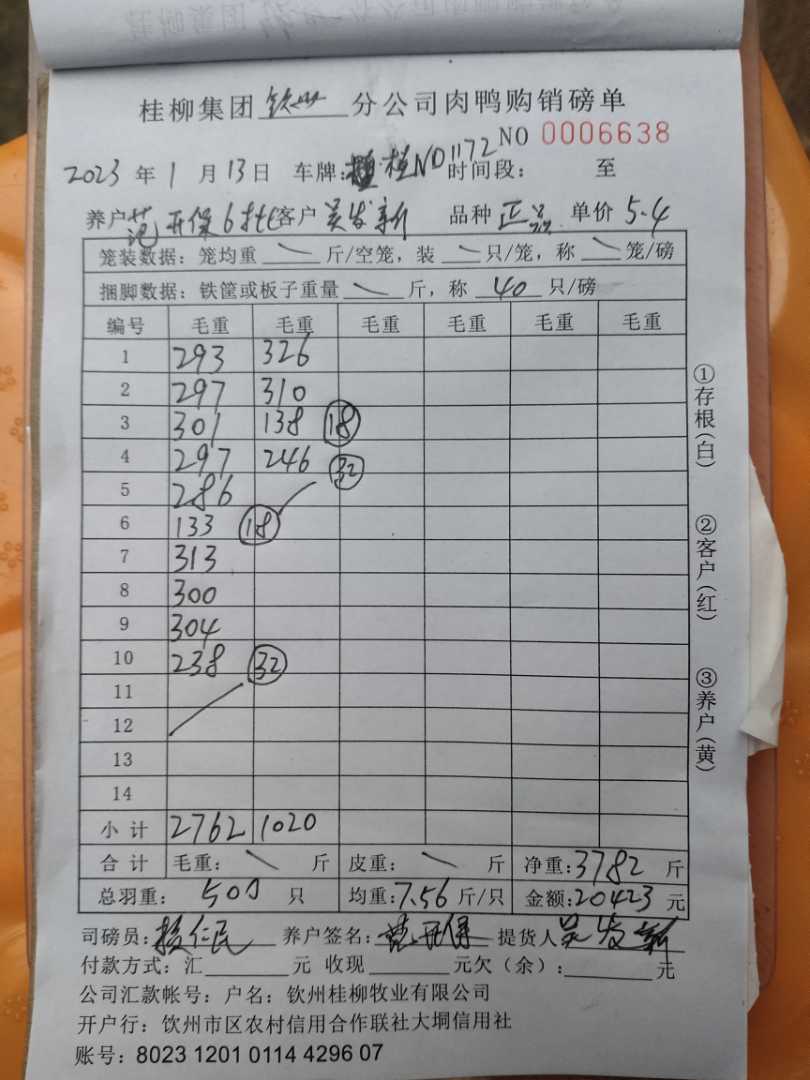 桂柳集团 钦州 分公司肉鸭购销磅单
NO 0006638
2023 年 1 月 13 日 车牌: 桂ND1172 时间段: 至
养户 范开保6批 客户 吴发新 品种 正品 单价 5.4
笼装数据: 笼均重 斤/空笼, 装 只/笼, 称 笼/磅
捆脚数据: 铁筐或板子重量 斤, 称 40 只/磅
编号 毛重 毛重 毛重 毛重 毛重 毛重
1 293 326
2 297 310
3 301 138 18
4 297 246 32
5 286
6 133 18
7 313
8 300
9 304
10 238 32
11
12
13
14
小计 2762 1020
合计 毛重: 斤 皮重: 斤 净重: 3782 斤
总羽重: 500 只 均重: 7.56 斤/只 金额: 20423 元
司磅员: 仁民 养户签名: 范开保 提货人 吴发新
付款方式: 汇 元 收现 元欠（余）: 元
公司汇款帐号: 户名: 钦州桂柳牧业有限公司
开户行: 饮州市区农村信用合作联社大垌信用社
账号: 8023 1201 0114 4296 07
①存根(白)
②客户(红)
③养户(黄)